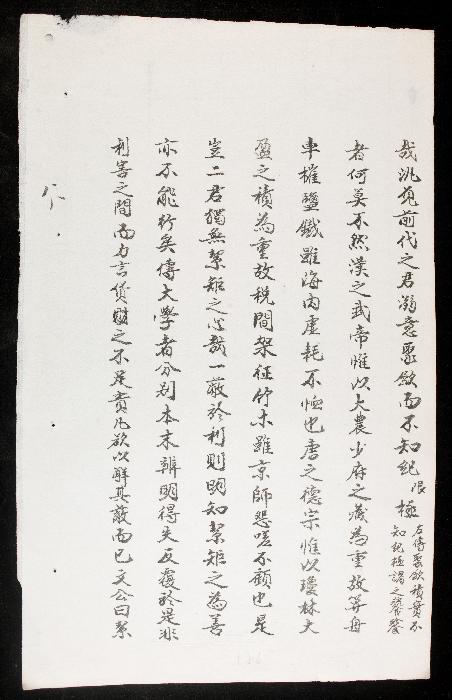 哉泛覔前代之君溺意聚歛而不知紀限極左傳聚歛積實不
知紀極謂之饕餮
者何莫不然漢之武帝惟以大農少府之蔵為重故筭舟
車榷鹽鐵雖海內虛耗不恤也唐之德宗惟以瓊林大
盈之積為重故稅間架征竹木雖京師怨嗟不顧也是
豈二君獨無絜矩之心哉一蔽於利則明知絜矩之為善
亦不能行矣傳大學者分别本末辨明得失反覆於是非
利害之間而力言貨財之不足貴凡欲以觧其蔽而已文公曰絜